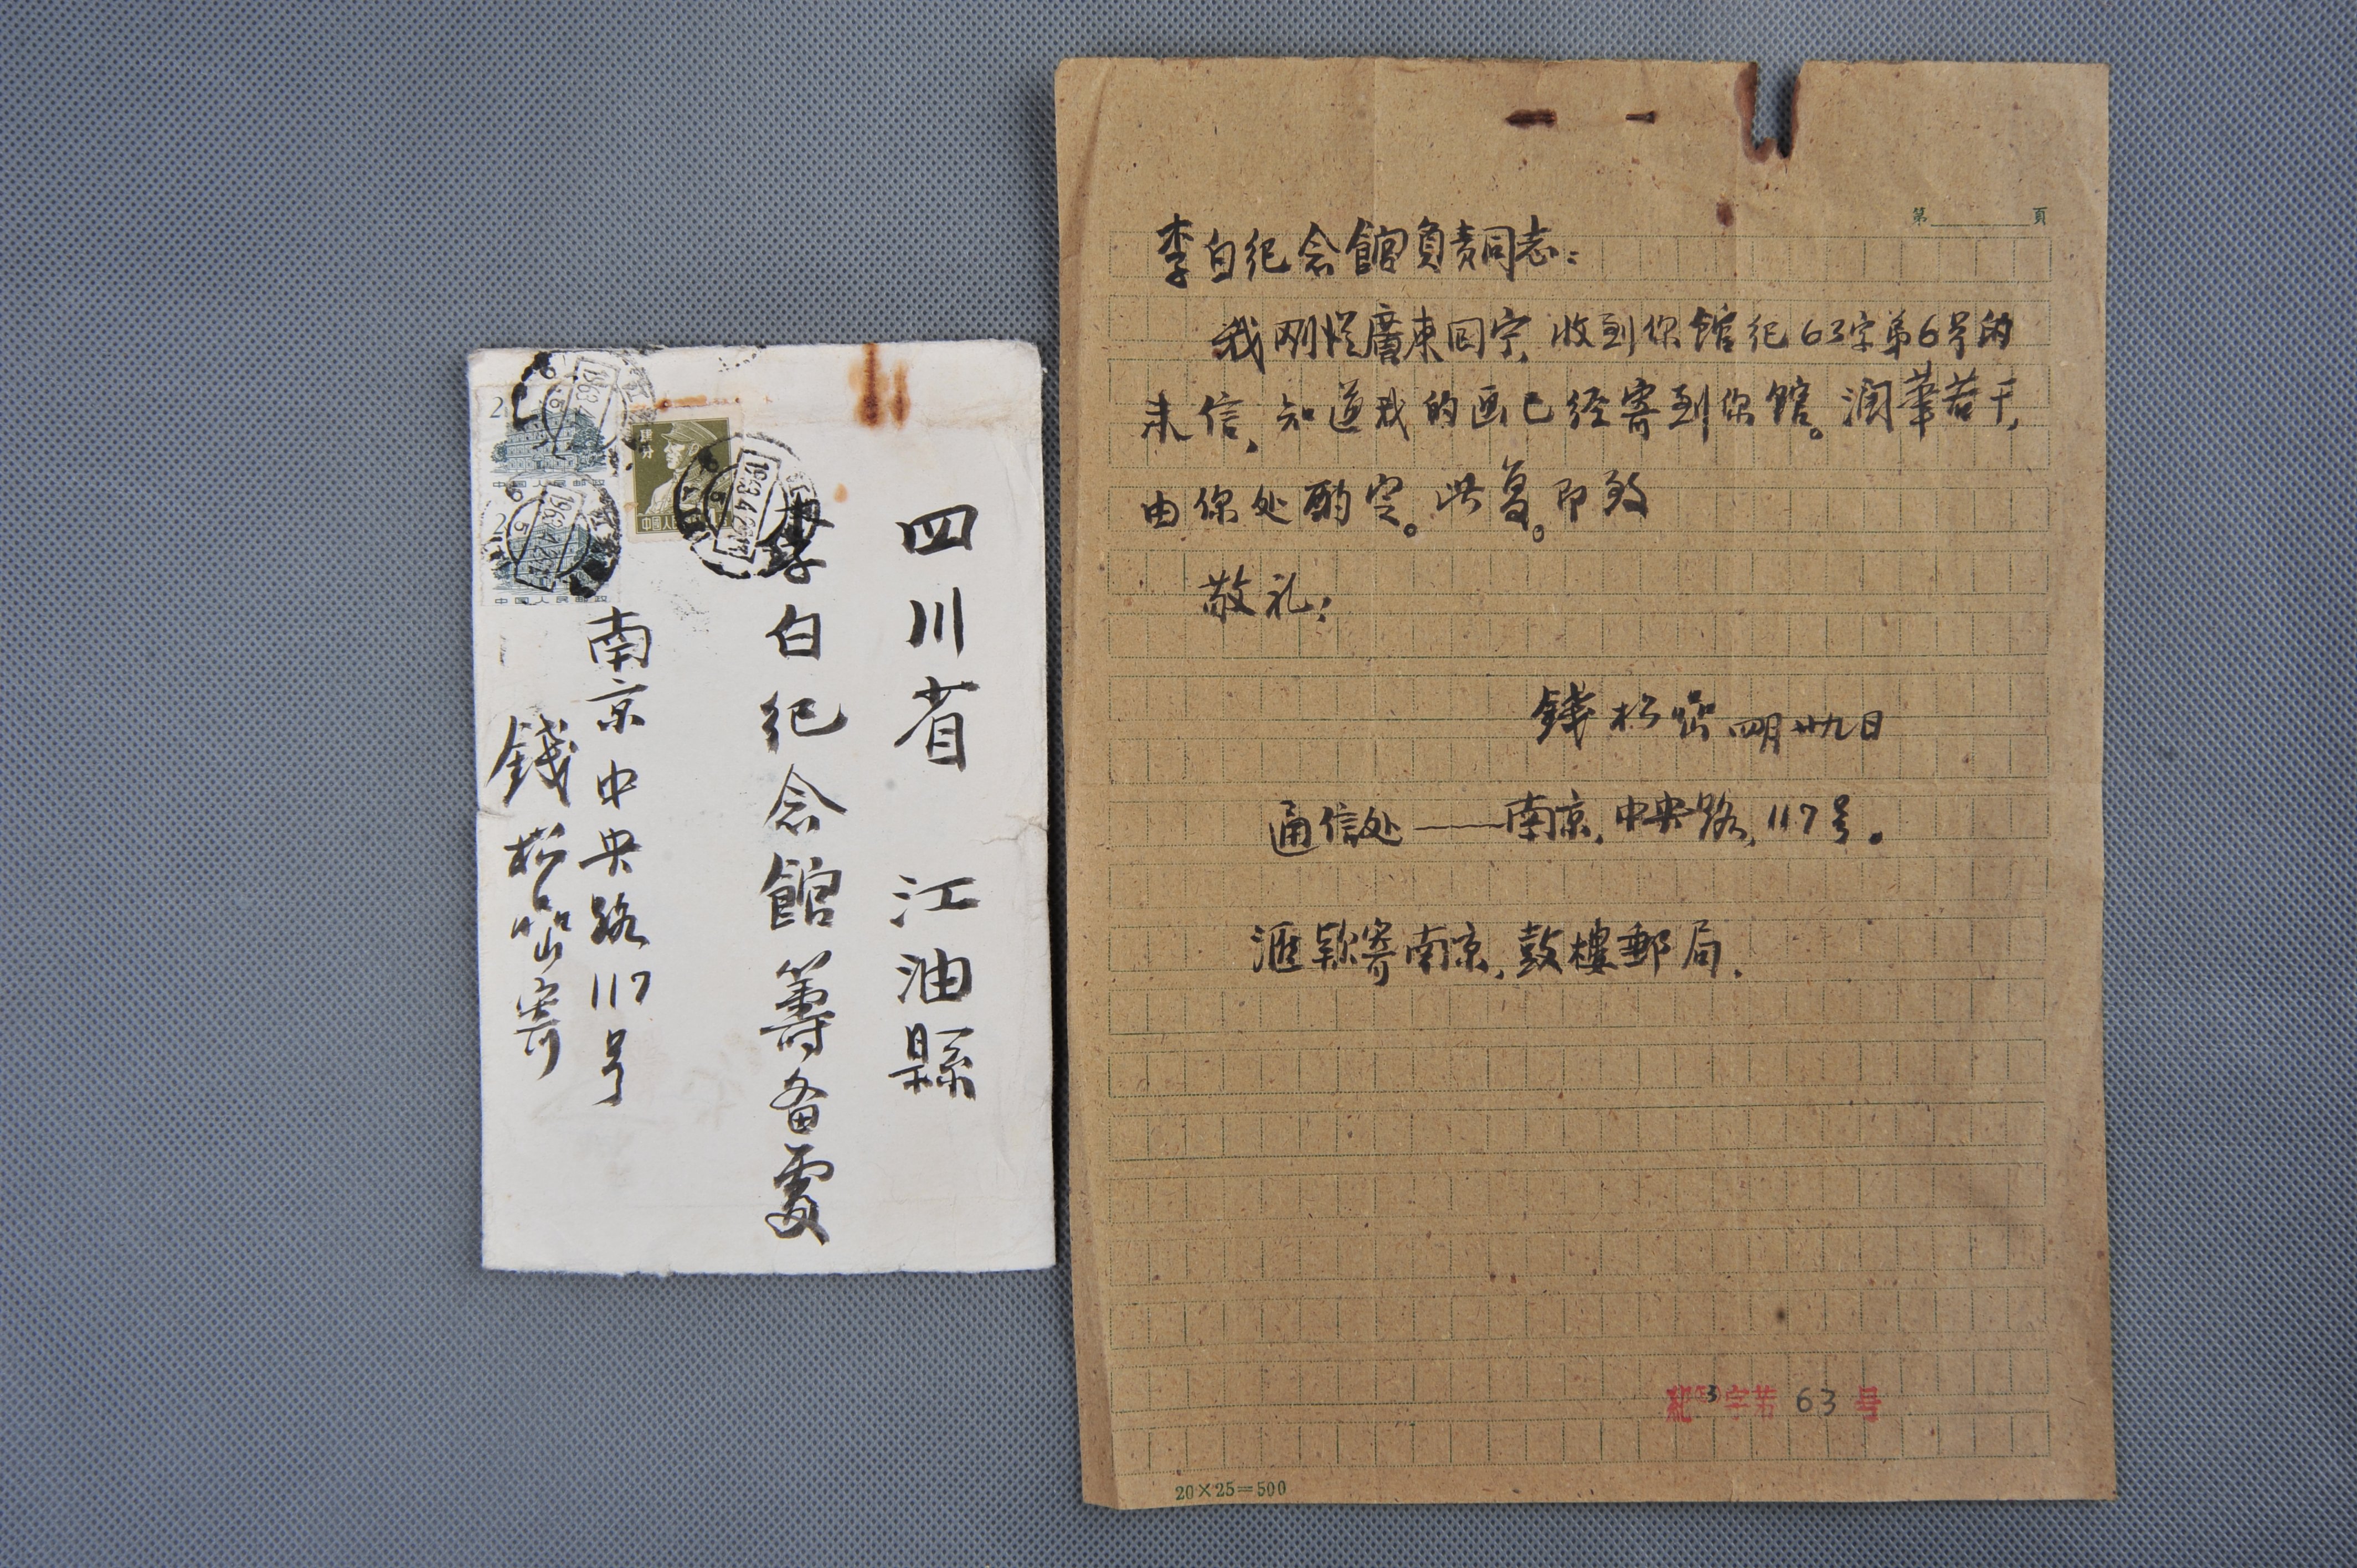 四川省 江油縣
李白纪念館籌备處
南京中央路117号
錢松嵒寄
中国人民邮政
中国人民邮政
第 頁
李白纪念館負责同志:
我刚從廣東回宁,收到你館纪63字第6号的
来信,知道我的画已经寄到你馆。润筆若干,
由你处酌定。此复。即致
敬礼!
錢松嵒 四月廿九日
通信处——南京,中央路,117号。
滙款寄南京,鼓樓郵局.
紀63字第63号
20×25=500